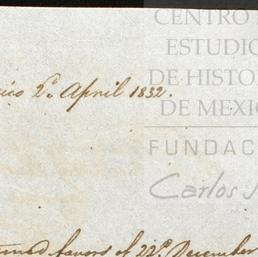 CENTRO
ESTUDIO
DE HISTOR
DE MEXI
FUNDAC
Carlos
ico 2d. April 1832.
favors of 22d. December